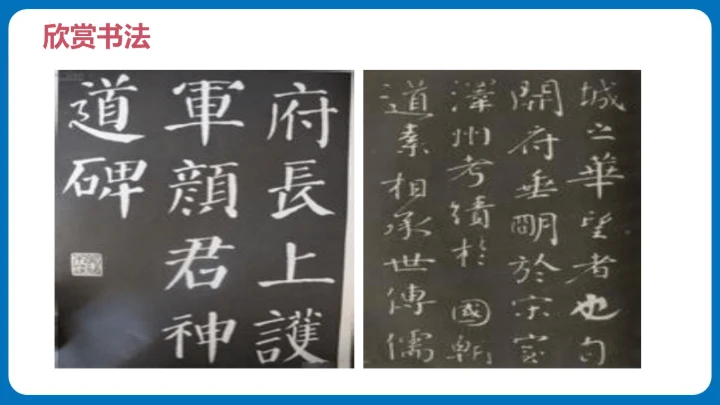 欣赏书法
府長上護
軍顏君神
道碑
城之華望者也自
開府垂明於宋室
澤州考績於國朝
道素相承世傳儒